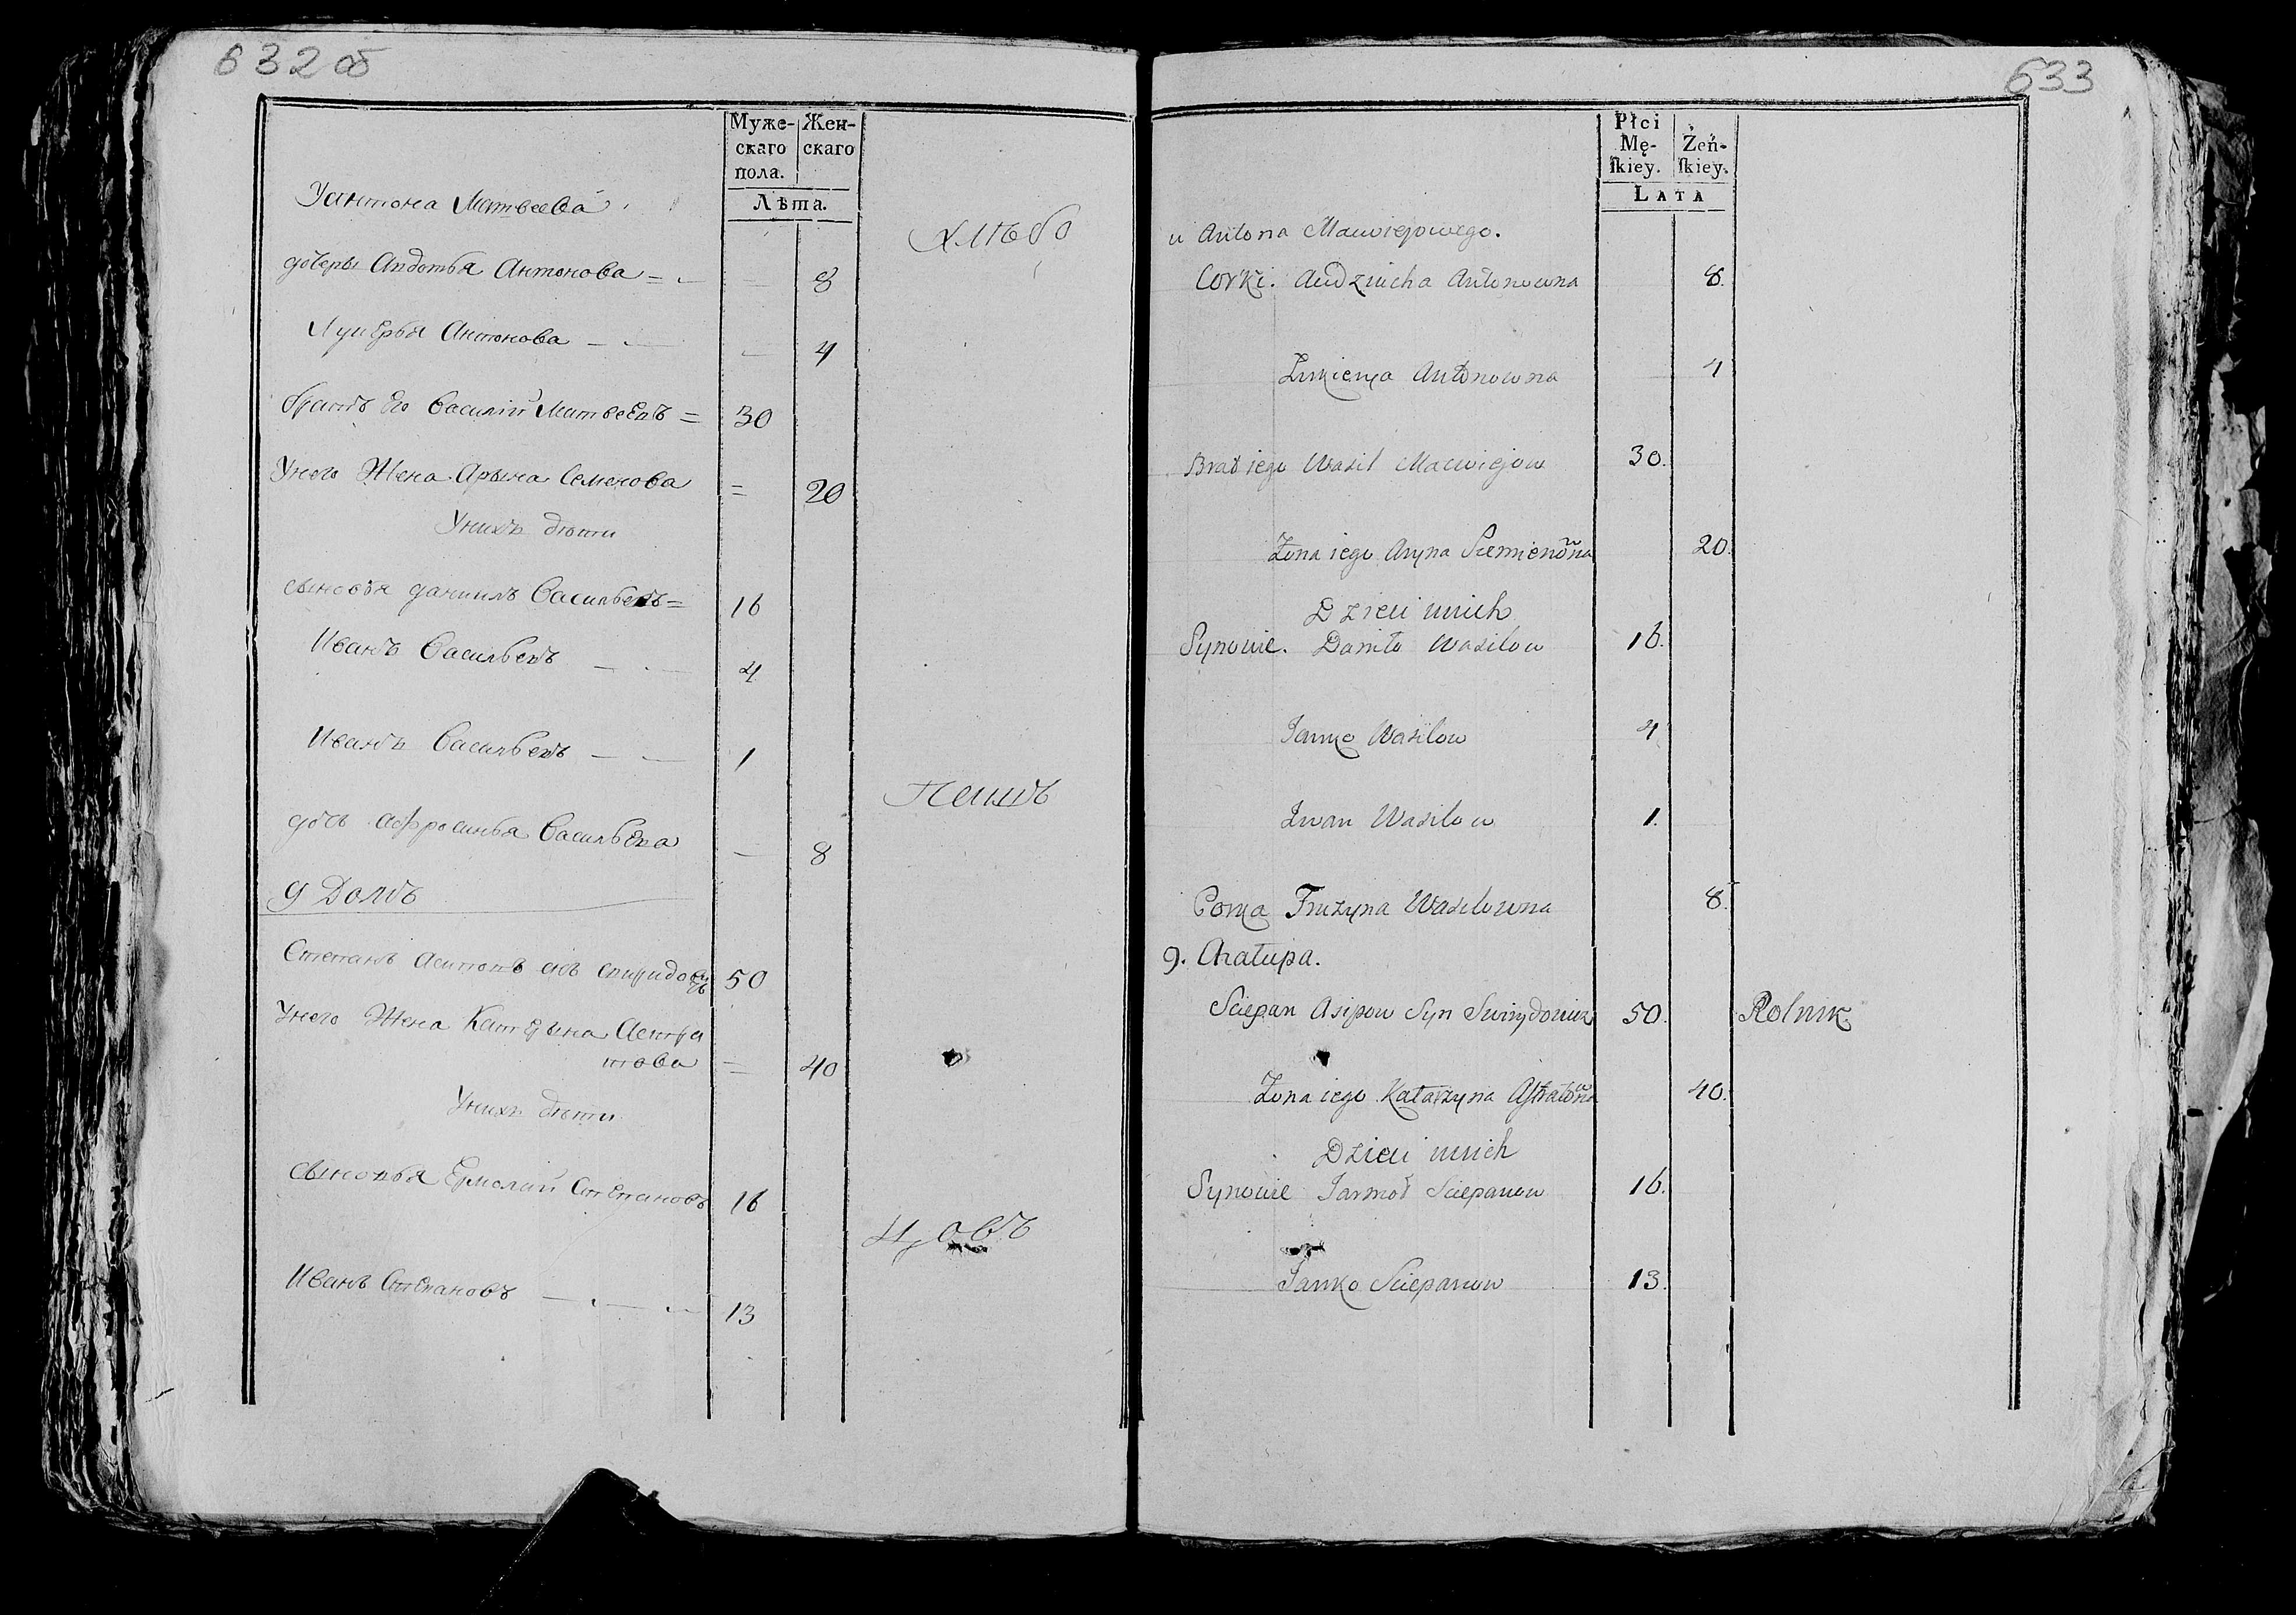 632 об
Муже- Жен-
скаго скаго
пола.
Лѣта.
Уантона Матвеева
хлѣбо
дочеры Авдотья Антонова = — 8
Лукерья Антонова — 4
братъ Его Василий Матвеевъ = 30
Унего Жена Арына Семенова = 20
Унихъ дѣти
сыновья данилъ Васильевъ = 16
Иванъ Васильевъ — 4
Иванъ Васильевъ — 1
пашъ
дочь афросинья Васильева — 8
9 Домъ
Степанъ Асиповъ сѣ спиридовичъ 50
Унего Жена Катерына Астра
това = 40
Унихъ дѣти
сыновья Ермолай Степановъ 16
цовъ
Иванъ Степановъ — 13
633
Płci
Mę- Żeń-
ſkiey. ſkiey.
LATA
u Antona Macwiejowego.
Corki. Audziucha Antonowna 8.
Łukieryа Antonowna 4
Brat iego Wasil Macwiejow 30.
Żona iego Aryna Siemienowna 20.
Dzieci unich
Synowie. Daniło Wasilow 16.
Janko Wasilow 4
Iwan Wasilow 1.
Corka Fruzyna Wasilowna 8.
9. Chałupa.
Sciepan Asipow Syn Swirydowicz 50. Rolnik.
Żona iego Katarzyna Aſtratowna 40.
Dzieci unich
Synowie Jarmoł Sciepanow 16.
Janko Sciepanow 13.